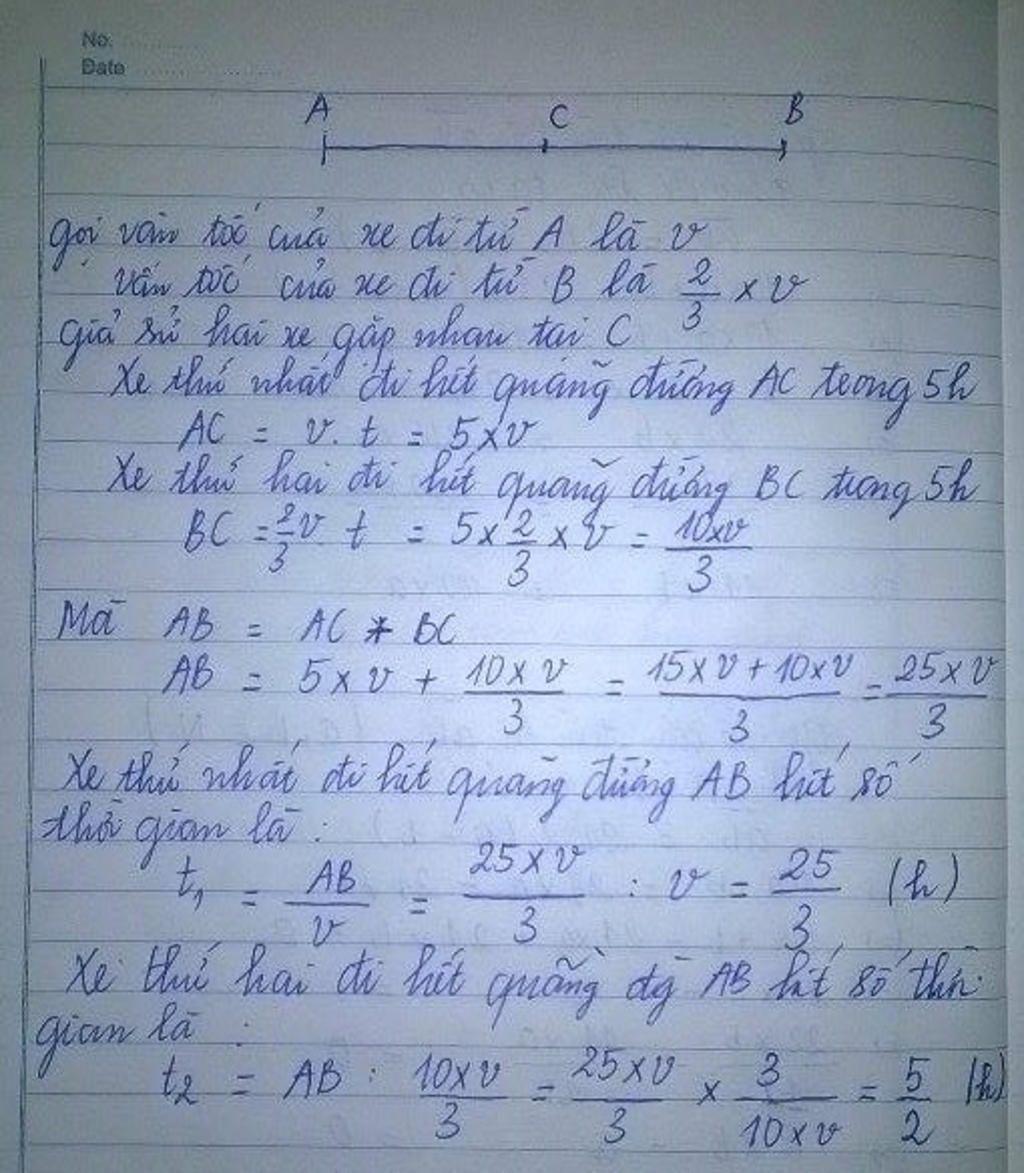 No.
Date
A C B
gọi vận tốc của xe đi từ A là v
vận tốc của xe đi từ B là 2/3 × v
giả sử hai xe gặp nhau tại C
Xe thứ nhất đi hết quãng đường AC trong 5h
AC = v. t = 5×v
Xe thứ hai đi hết quãng đường BC trong 5h
BC = 2/3 v. t = 5 × 2/3 × v = 10×v/3
Mà AB = AC + BC
AB = 5×v + 10×v/3 = 15×v + 10×v/3 = 25×v/3
Xe thứ nhất đi hết quãng đường AB hết số
thời gian là :
t₁ = AB/v = 25×v/3 : v = 25/3 (h)
Xe thứ hai đi hết quãng đg AB hết số thời
gian là :
t₂ = AB : 10×v/3 = 25×v/3 × 3/10×v = 5/2 (h)